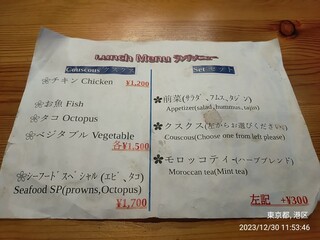 Lunch Menu ランチメニュー
Couscous クスクス
チキン Chicken
¥1,200
お魚 Fish
タコ Octopus
ベジタブル Vegetable
各¥1,500
シーフードスペシャル (エビ、タコ)
Seafood SP(prowns,Octopus)
¥1,700
Set セット
前菜(サラダ、フムス、タジン)
Appetizer(salad, hummus, tajin)
クスクス(左からお選びください)
Couscous(Choose one from left please)
モロッコティー(ハーブブレンド)
Moroccan tea(Mint tea)
左記 +¥300
東京都, 港区
2023/12/30 11:53:46